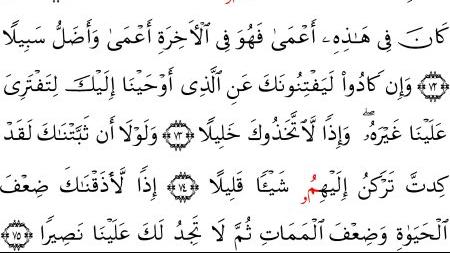 كَانَ فِي هَٰذِهِۦ أَعْمَىٰ فَهُوَ فِي ٱلْأٓخِرَةِ أَعْمَىٰ وَأَضَلُّ سَبِيلًا
﴿٧٢﴾ وَإِن كَادُوا۟ لَيَفْتِنُونَكَ عَنِ ٱلَّذِي أَوْحَيْنَا إِلَيْكَ لِتَفْتَرِيَ
عَلَيْنَا غَيْرَهُۥۖ وَإِذًا لَّٱتَّخَذُوكَ خَلِيلًا ﴿٧٣﴾ وَلَوْلَا أَن ثَبَّتْنَٰكَ لَقَدْ
كِدتَّ تَرْكَنُ إِلَيْهِمُۥ شَيْـًٔا قَلِيلًا ﴿٧٤﴾ إِذًا لَّأَذَقْنَٰكَ ضِعْفَ
ٱلْحَيَوٰةِ وَضِعْفَ ٱلْمَمَاتِ ثُمَّ لَا تَجِدُ لَكَ عَلَيْنَا نَصِيرًا ﴿٧٥﴾